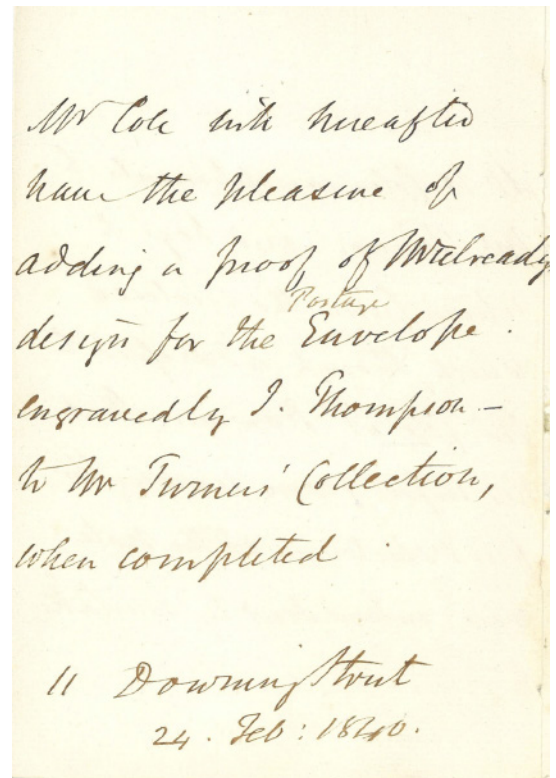 Mr Cole will hereafter
have the pleasure of
adding a proof of Mulready
design for the Postage Envelope.
engraved by J. Thompson –
to Mr Turners' Collection,
when completed
11 Downing Street
24. Feb: 1840.